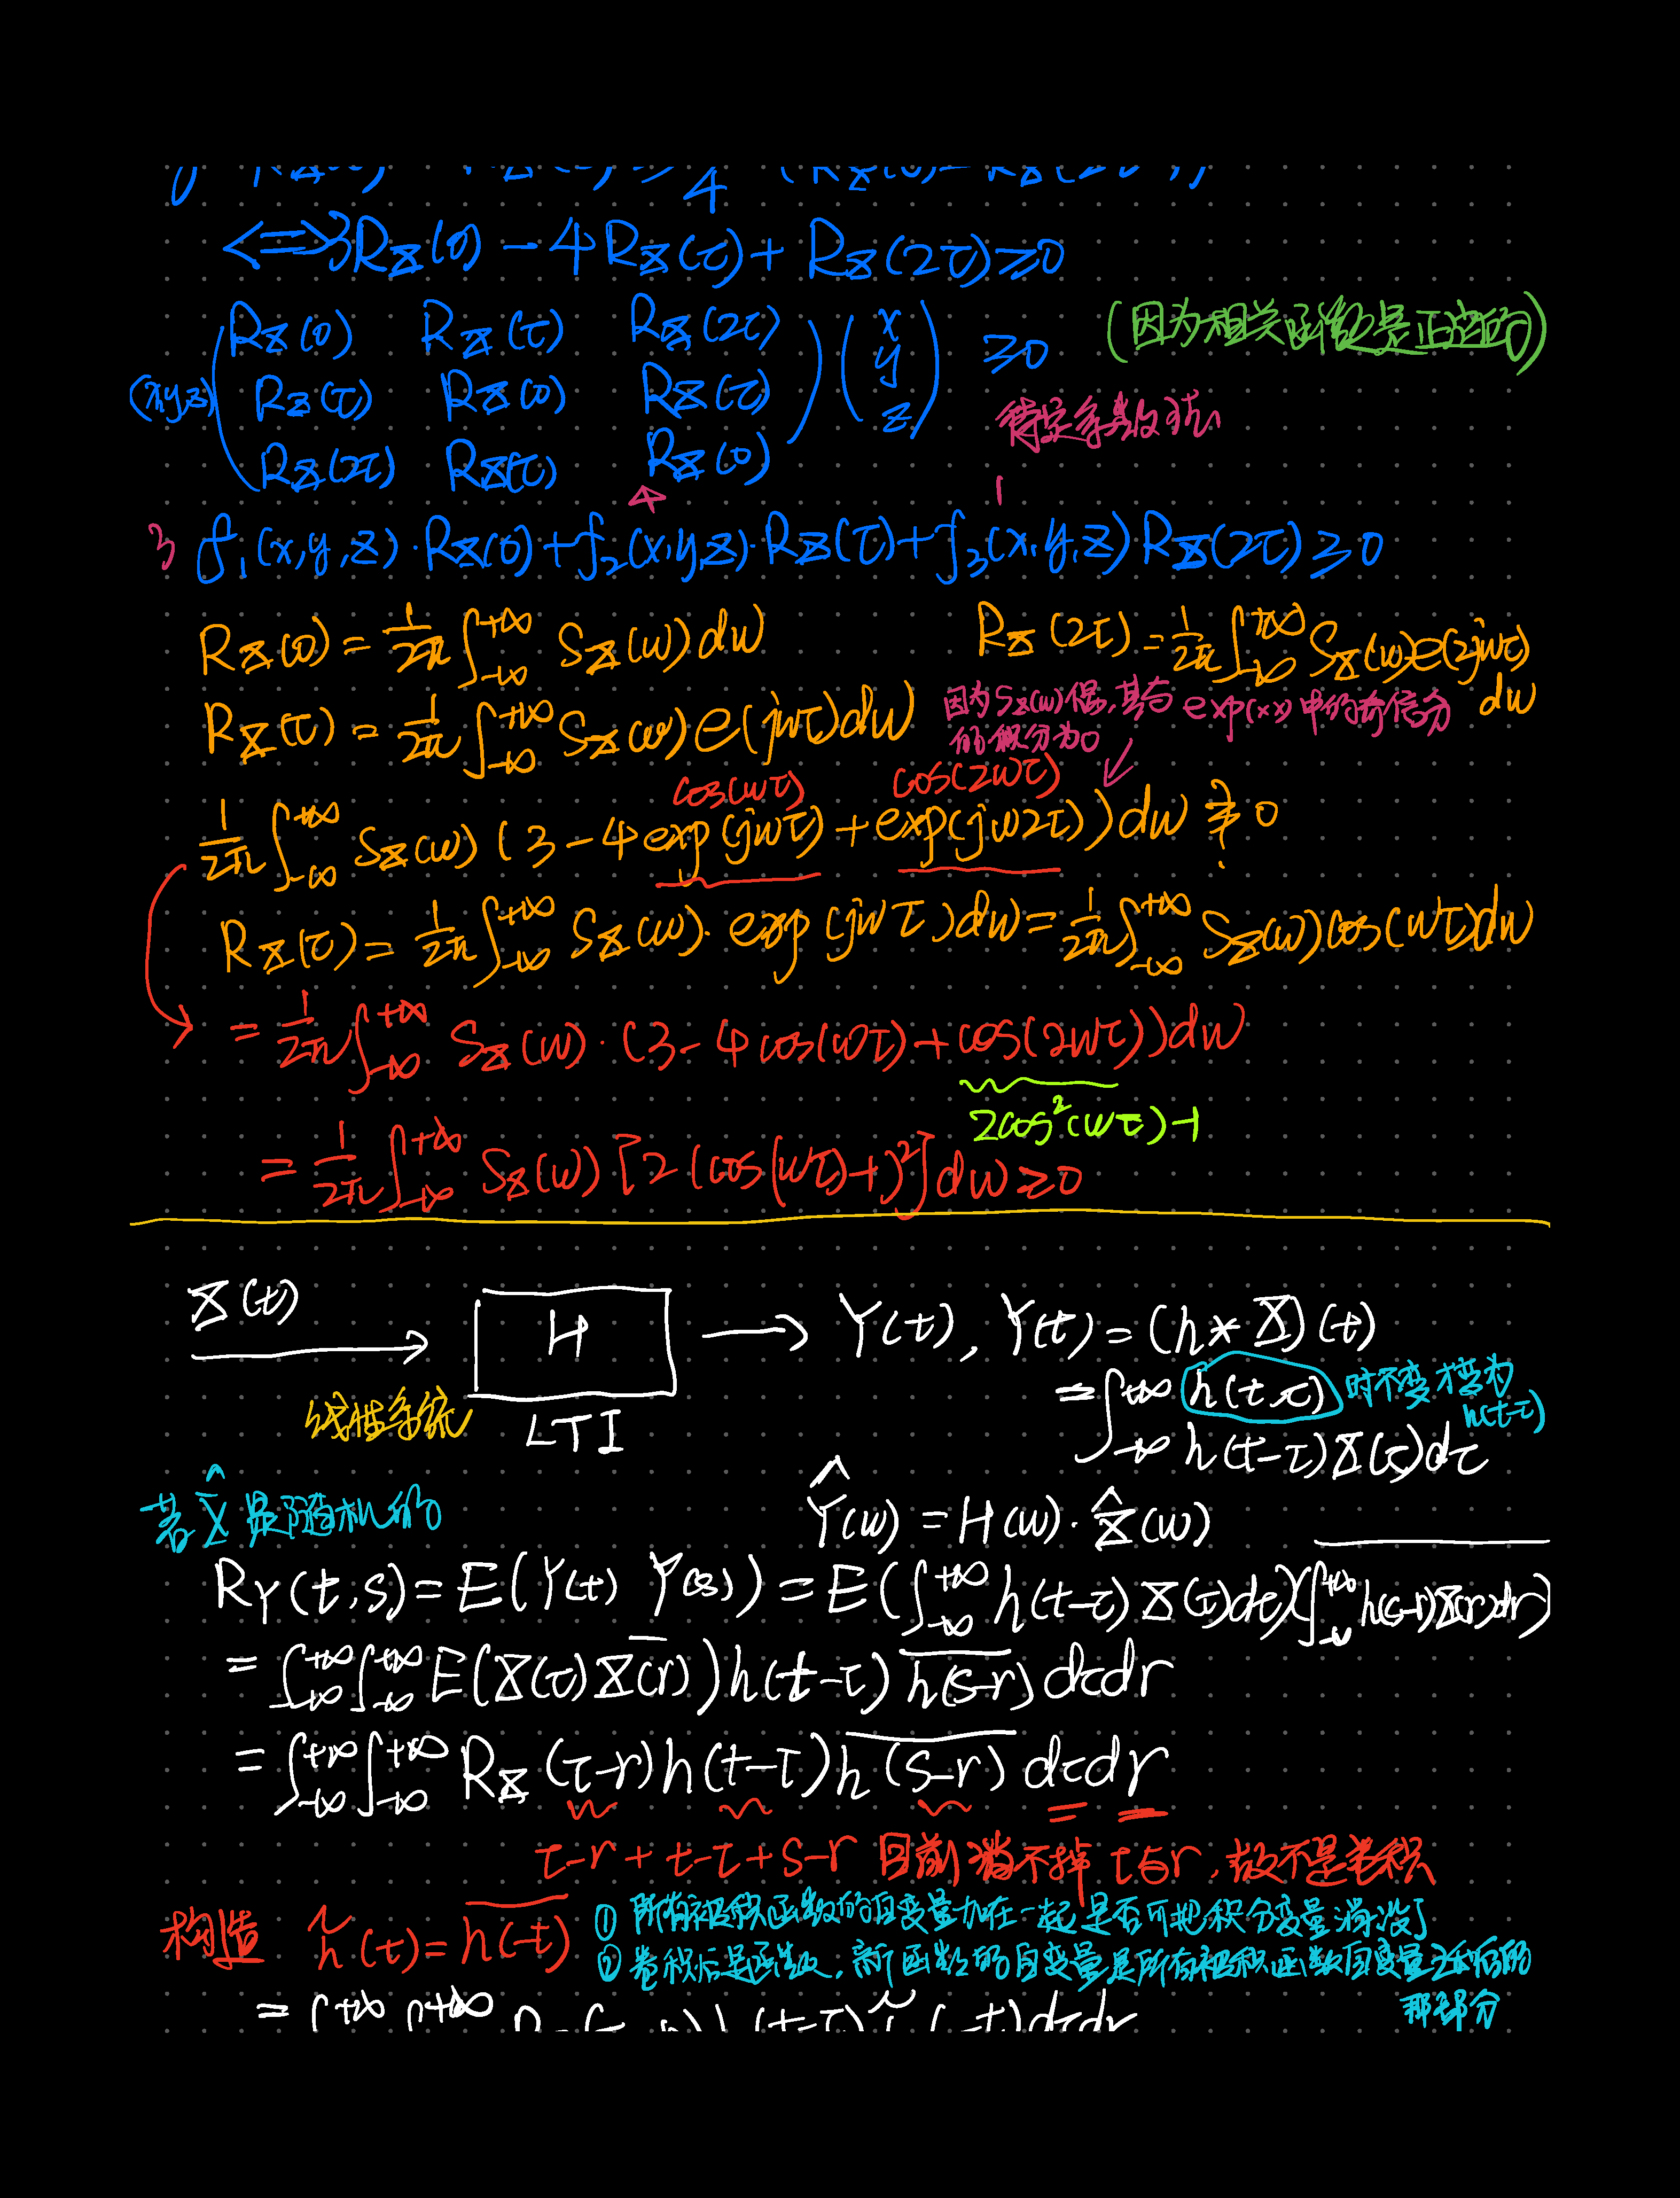 <=> 3R_X(0) - 4R_X(τ) + R_X(2τ) ≥ 0
(x,y,z) ( R_X(0) R_X(τ) R_X(2τ) ) ( x ) ≥ 0 (因为相关函数是正定的)
R_X(τ) R_X(0) R_X(τ) y
R_X(2τ) R_X(τ) R_X(0) z 待定系数法
3 -4 1
f₁(x,y,z)·R_X(0) + f₂(x,y,z)·R_X(τ) + f₃(x,y,z) R_X(2τ) ≥ 0
R_X(0) = 1/2π ∫_{-∞}^{+∞} S_X(w) dw R_X(2τ) = 1/2π ∫_{-∞}^{+∞} S_X(w) e(2jwτ) dw
R_X(τ) = 1/2π ∫_{-∞}^{+∞} S_X(w) e(jwτ) dw
因为 S_X(w) 偶, 其与 exp(xx) 中的奇信分
的积分为0
cos(wτ) cos(2wτ)
1/2π ∫_{-∞}^{+∞} S_X(w) (3 - 4exp(jwτ) + exp(jw2τ)) dw ≥ 0 ?
R_X(τ) = 1/2π ∫_{-∞}^{+∞} S_X(w)·exp(jwτ) dw = 1/2π ∫_{-∞}^{+∞} S_X(w) cos(wτ) dw
= 1/2π ∫_{-∞}^{+∞} S_X(w)·(3 - 4cos(wτ) + cos(2wτ)) dw
2cos²(wτ)-1
= 1/2π ∫_{-∞}^{+∞} S_X(w) [2(cos(wτ)-1)²] dw ≥ 0
X(t) → H → Y(t), Y(t) = (h * X)(t)
线性系统 LTI
= ∫_{-∞}^{+∞} h(t,τ) 时不变才变为 h(t-τ)
h(t-τ) X(τ) dτ
若 X̂ 是随机的
Ŷ(w) = H(w)·X̂(w)
R_Y(t,s) = E(Y(t) Y(s)) = E(∫_{-∞}^{+∞} h(t-τ) X(τ) dτ)(\overline{∫_{-∞}^{+∞} h(s-r) X(r) dr})
= ∫_{-∞}^{+∞} ∫_{-∞}^{+∞} E(X(τ) \overline{X(r)}) h(t-τ) \overline{h(s-r)} dτ dr
= ∫_{-∞}^{+∞} ∫_{-∞}^{+∞} R_X(τ-r) h(t-τ) \overline{h(s-r)} dτ dr
τ-r + t-τ + s-r 目前消不掉 τ与r, 故不是卷积
构造 h̃(t) = \overline{h(-t)}
① 所有被积函数的自变量加在一起是否可把积分变量消没了
② 卷积后是函数, 新函数的自变量是所有被积函数自变量之和后的
那部分